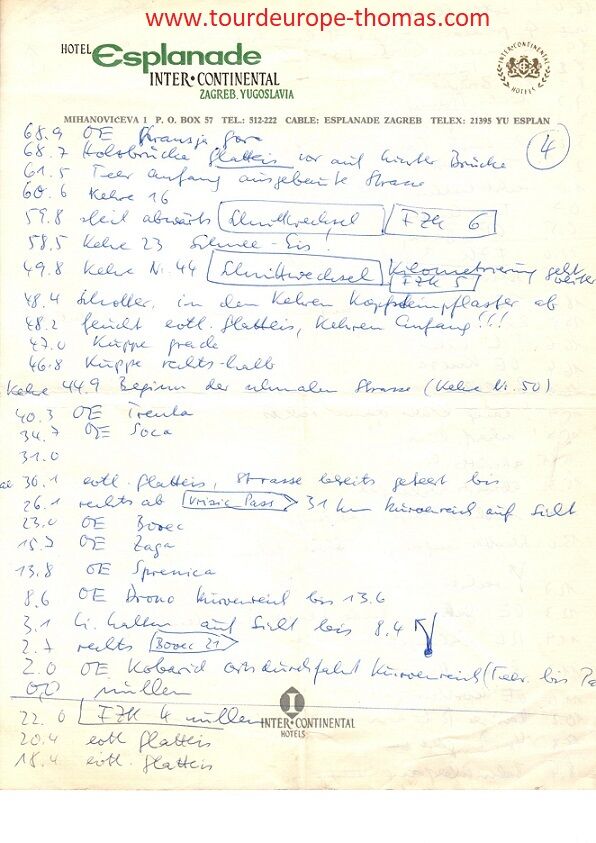 www.tourdeurope-thomas.com
HOTEL Esplanade
INTER•CONTINENTAL
ZAGREB, YUGOSLAVIA
INTER•CONTINENTAL HOTELS
MIHANOVICEVA 1 P. O. BOX 57 TEL.: 512-222 CABLE: ESPLANADE ZAGREB TELEX: 21395 YU ESPLAN
4
68.9 OE Kransja gora
68.7 Holzbrücke Glatteis vor auf hinter Brücke
61.5 Teer anfang ausgebaute Strasse
60.6 Kehre 16
59.8 steil abwärts Schnittwechsel FZK 6
58.5 Kehre 23 Schnee-Eis!
49.8 Kehre Nr. 44 Schnittwechsel Kilometrierung geht weiter
FZK 5
48.4 Schotter, in den Kehren Kopfsteinpflaster ab
48.2 feucht evtl. Glatteis, Kehren Anfang!!!
47.0 Kuppe grade
46.8 Kuppe rechts-halb
Kehre 44.9 Beginn der schmalen Strasse (Kehre Nr. 50)
40.3 OE Trenta
34.7 OE Soca
31.0
30.1 evtl. Glatteis, Strasse bereits geteert bis
26.1 rechts ab Vrisic Pass 31 km kurvenreich auf Sicht
23.0 OE Bovec
15.7 OE Zaga
13.8 OE Sprenica
8.6 OE Drono kurvenreich bis 13.6
3.1 li. halten auf Sicht bis 8.4
2.7 rechts Bovec 21
2.0 OE Kobarid ortsdurchfahrt kurvenreich (Teer bis
0,0 nullen
22.0 FZK 4 nullen
INTER•CONTINENTAL
HOTELS
20.4 evtl Glatteis
18.4 evtl. Glatteis